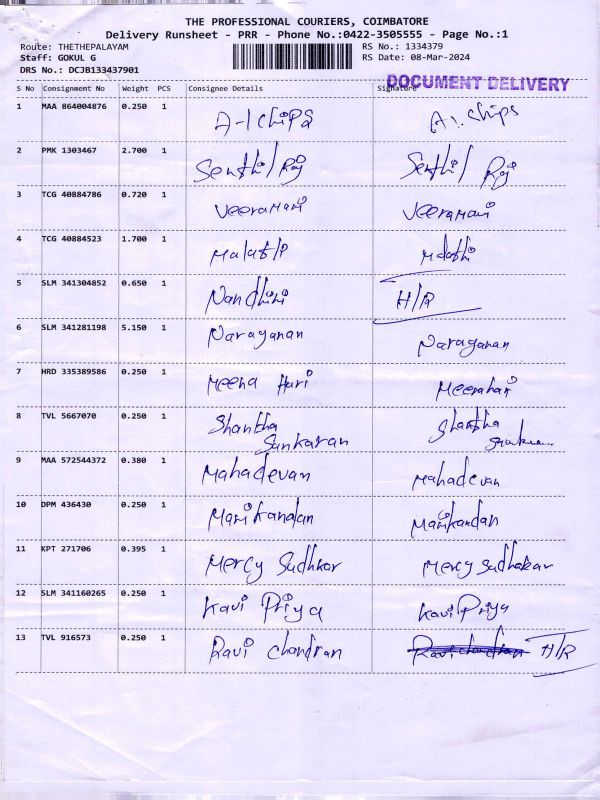 THE PROFESSIONAL COURIERS, COIMBATORE
Delivery Runsheet - PRR - Phone No.:0422-3505555 - Page No.:1
Route: THETHEPALAYAM RS No.: 1334379
Staff: GOKUL G RS Date: 08-Mar-2024
DRS No.: DCJB133437901
DOCUMENT DELIVERY
S No Consignment No Weight PCS Consignee Details Signature
1 MAA 864004876 0.250 1 A-1 chips A1. chips
2 PMK 1303467 2.700 1 Senthil Raj Senthil Raj
3 TCG 40884786 0.720 1 Veeramani Veeramani
4 TCG 40884523 1.700 1 Malathi Malathi
5 SLM 341304852 0.650 1 Nandhini H/R
6 SLM 341281198 5.150 1 Narayanan Narayanan
7 HRD 335389586 0.250 1 Meena Hari Meenahari
8 TVL 5667070 0.250 1 Shantha Shantha
Sankaran
9 MAA 572544372 0.380 1 Mahadevan Mahadevan
10 DPM 436430 0.250 1 Manikandan Manikandan
11 KPT 271706 0.395 1 Mercy Sudhkar Mercy Sudhakar
12 SLM 341160265 0.250 1 Kavi Priya Kavi Priya
13 TVL 916573 0.250 1 Ravi chandran Ravi chandran H/R